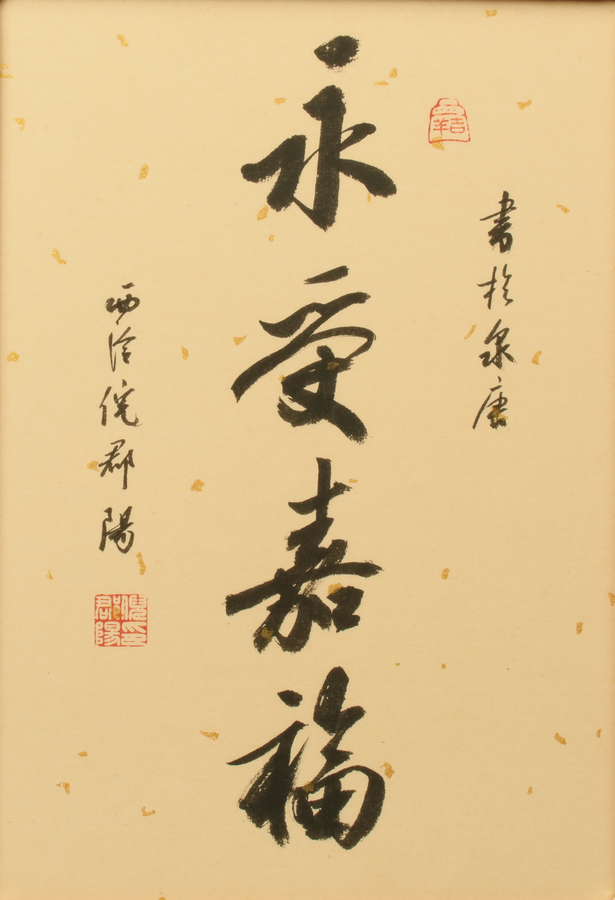 書於泉唐
永受嘉福
西泠倪郡陽
倪印郡陽